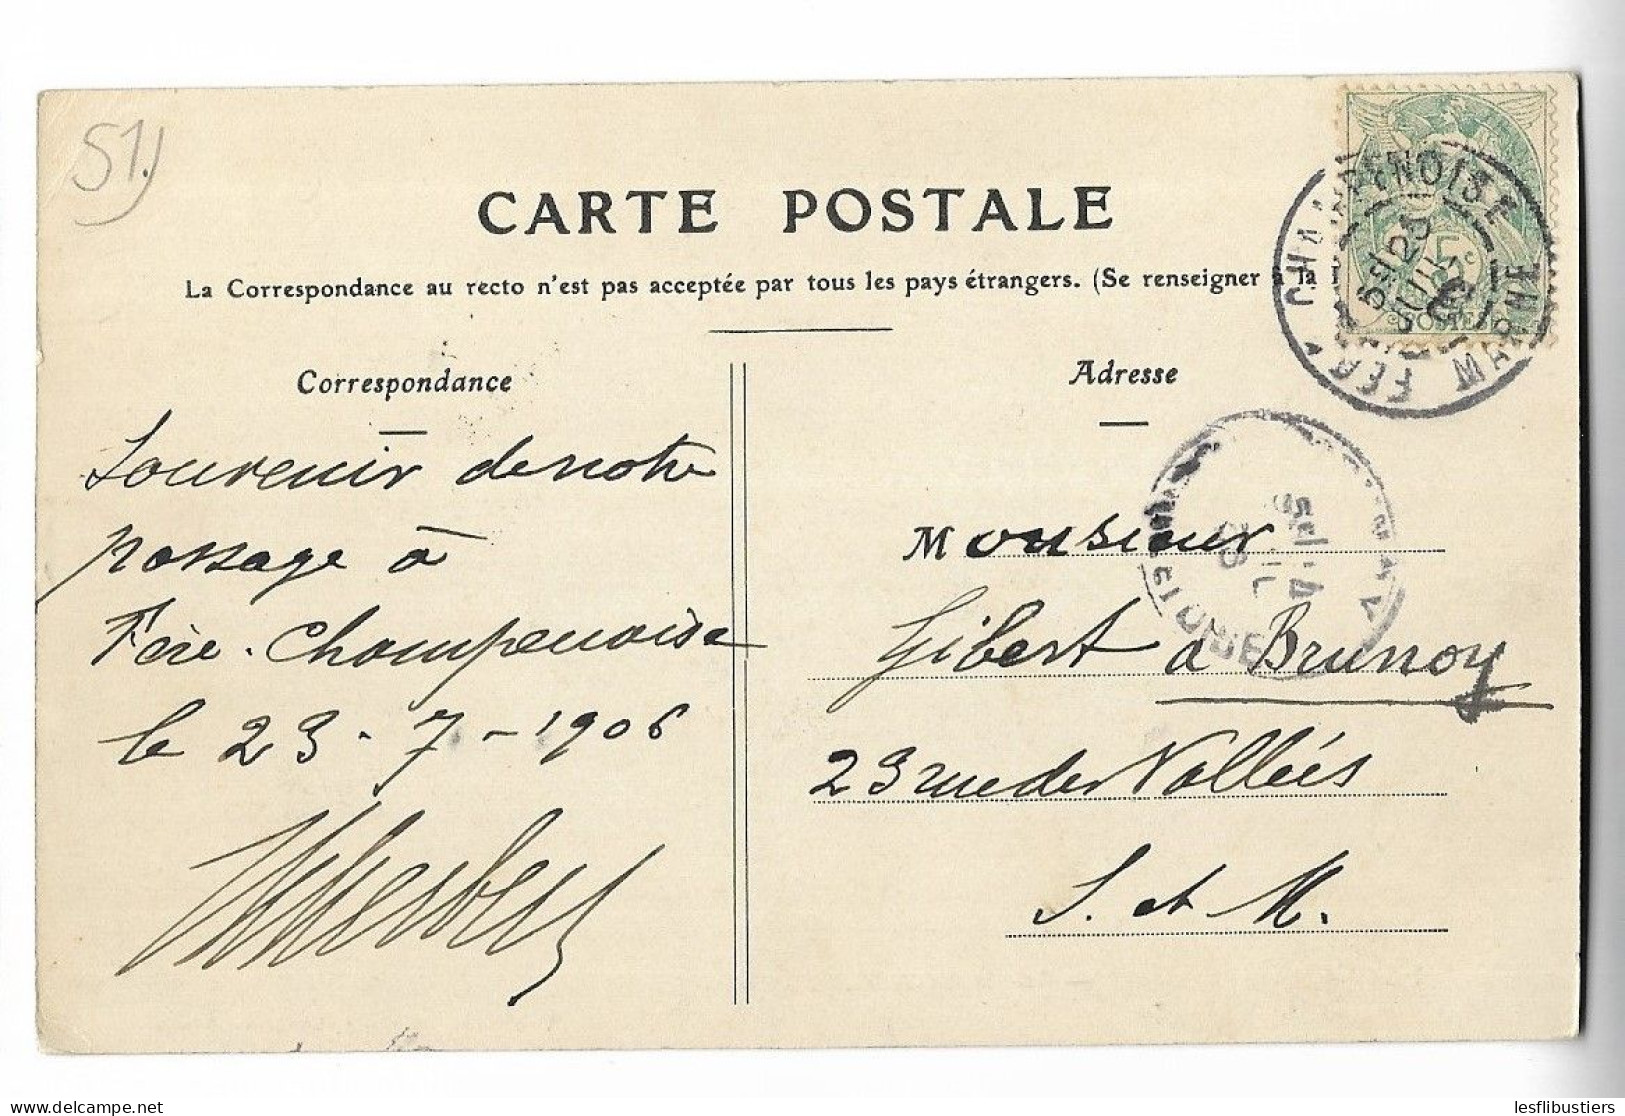 51.
CARTE POSTALE
La Correspondance au recto n'est pas acceptée par tous les pays étrangers. (Se renseigner à la
Correspondance
Souvenir de notre
passage à
Fère-Champenoise
le 23-7-1906
Adresse
Monsieur
Gibert à Brunoy
23 rue des Vallées
S. et M.
FERE CHAMPENOISE
MARNE
23
5c
POSTES
lesflibustiers